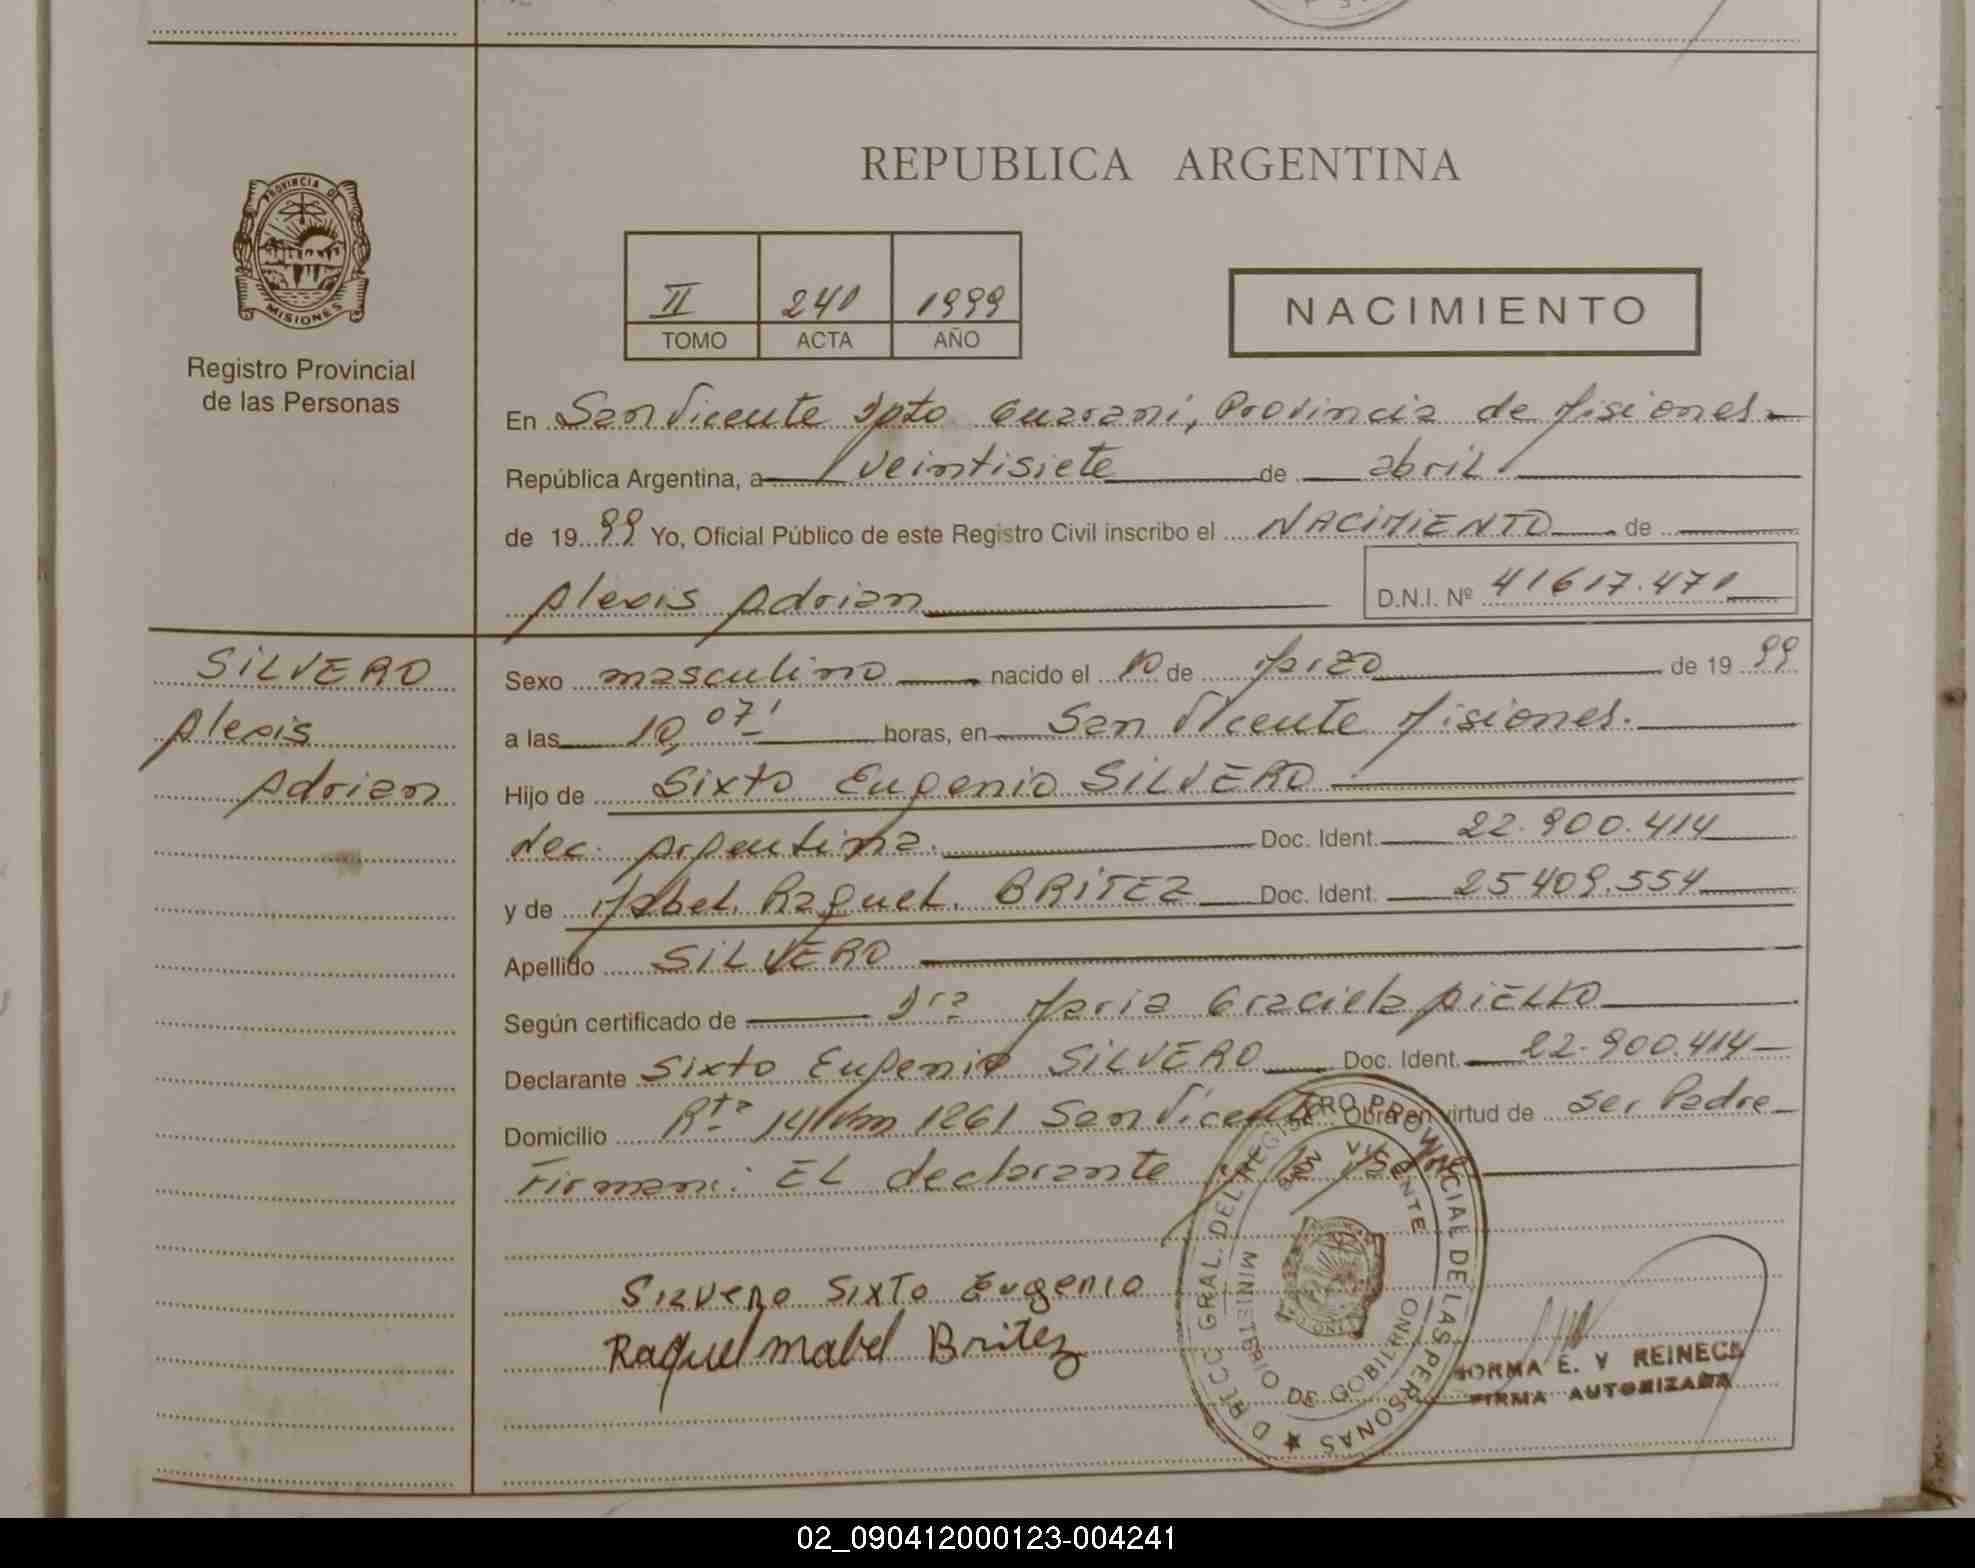 REPUBLICA ARGENTINA
PROVINCIA DE
MISIONES
Registro Provincial
de las Personas
II 241 1999
TOMO ACTA AÑO
NACIMIENTO
En San Vicente Dpto Guarani, Provincia de Misiones
República Argentina, a veintisiete de abril
de 1999 Yo, Oficial Público de este Registro Civil inscribo el NACIMIENTO de
Alexis Adrian D.N.I. Nº 41617.471
SILVERO
Alexis
Adrian
Sexo masculino nacido el 10 de Marzo de 1999
a las 10,07' horas, en San Vicente Misiones.
Hijo de Sixto Eugenio SILVERO
Nac. Argentina. Doc. Ident. 22.900.414
y de Mabel. Raquel. BRITEZ Doc. Ident. 25409.554
Apellido SILVERO
Según certificado de Dra Maria Graciela AIELLO
Declarante Sixto Eugenio SILVERO Doc. Ident. 22.900.414
Domicilio Rta 14 Km 1261 San Vicente Obra en virtud de ser Padre
Firman: EL declarante
Silvero Sixto Eugenio
Raquel Mabel Britez
DRECC GRAL. DEL REGISTRO PROVINCIAL DE LAS PERSONAS
SAN VICENTE
MINISTERIO DE GOBIERNO
NORMA E. V REINECK
FIRMA AUTORIZADA
02_090412000123-004241